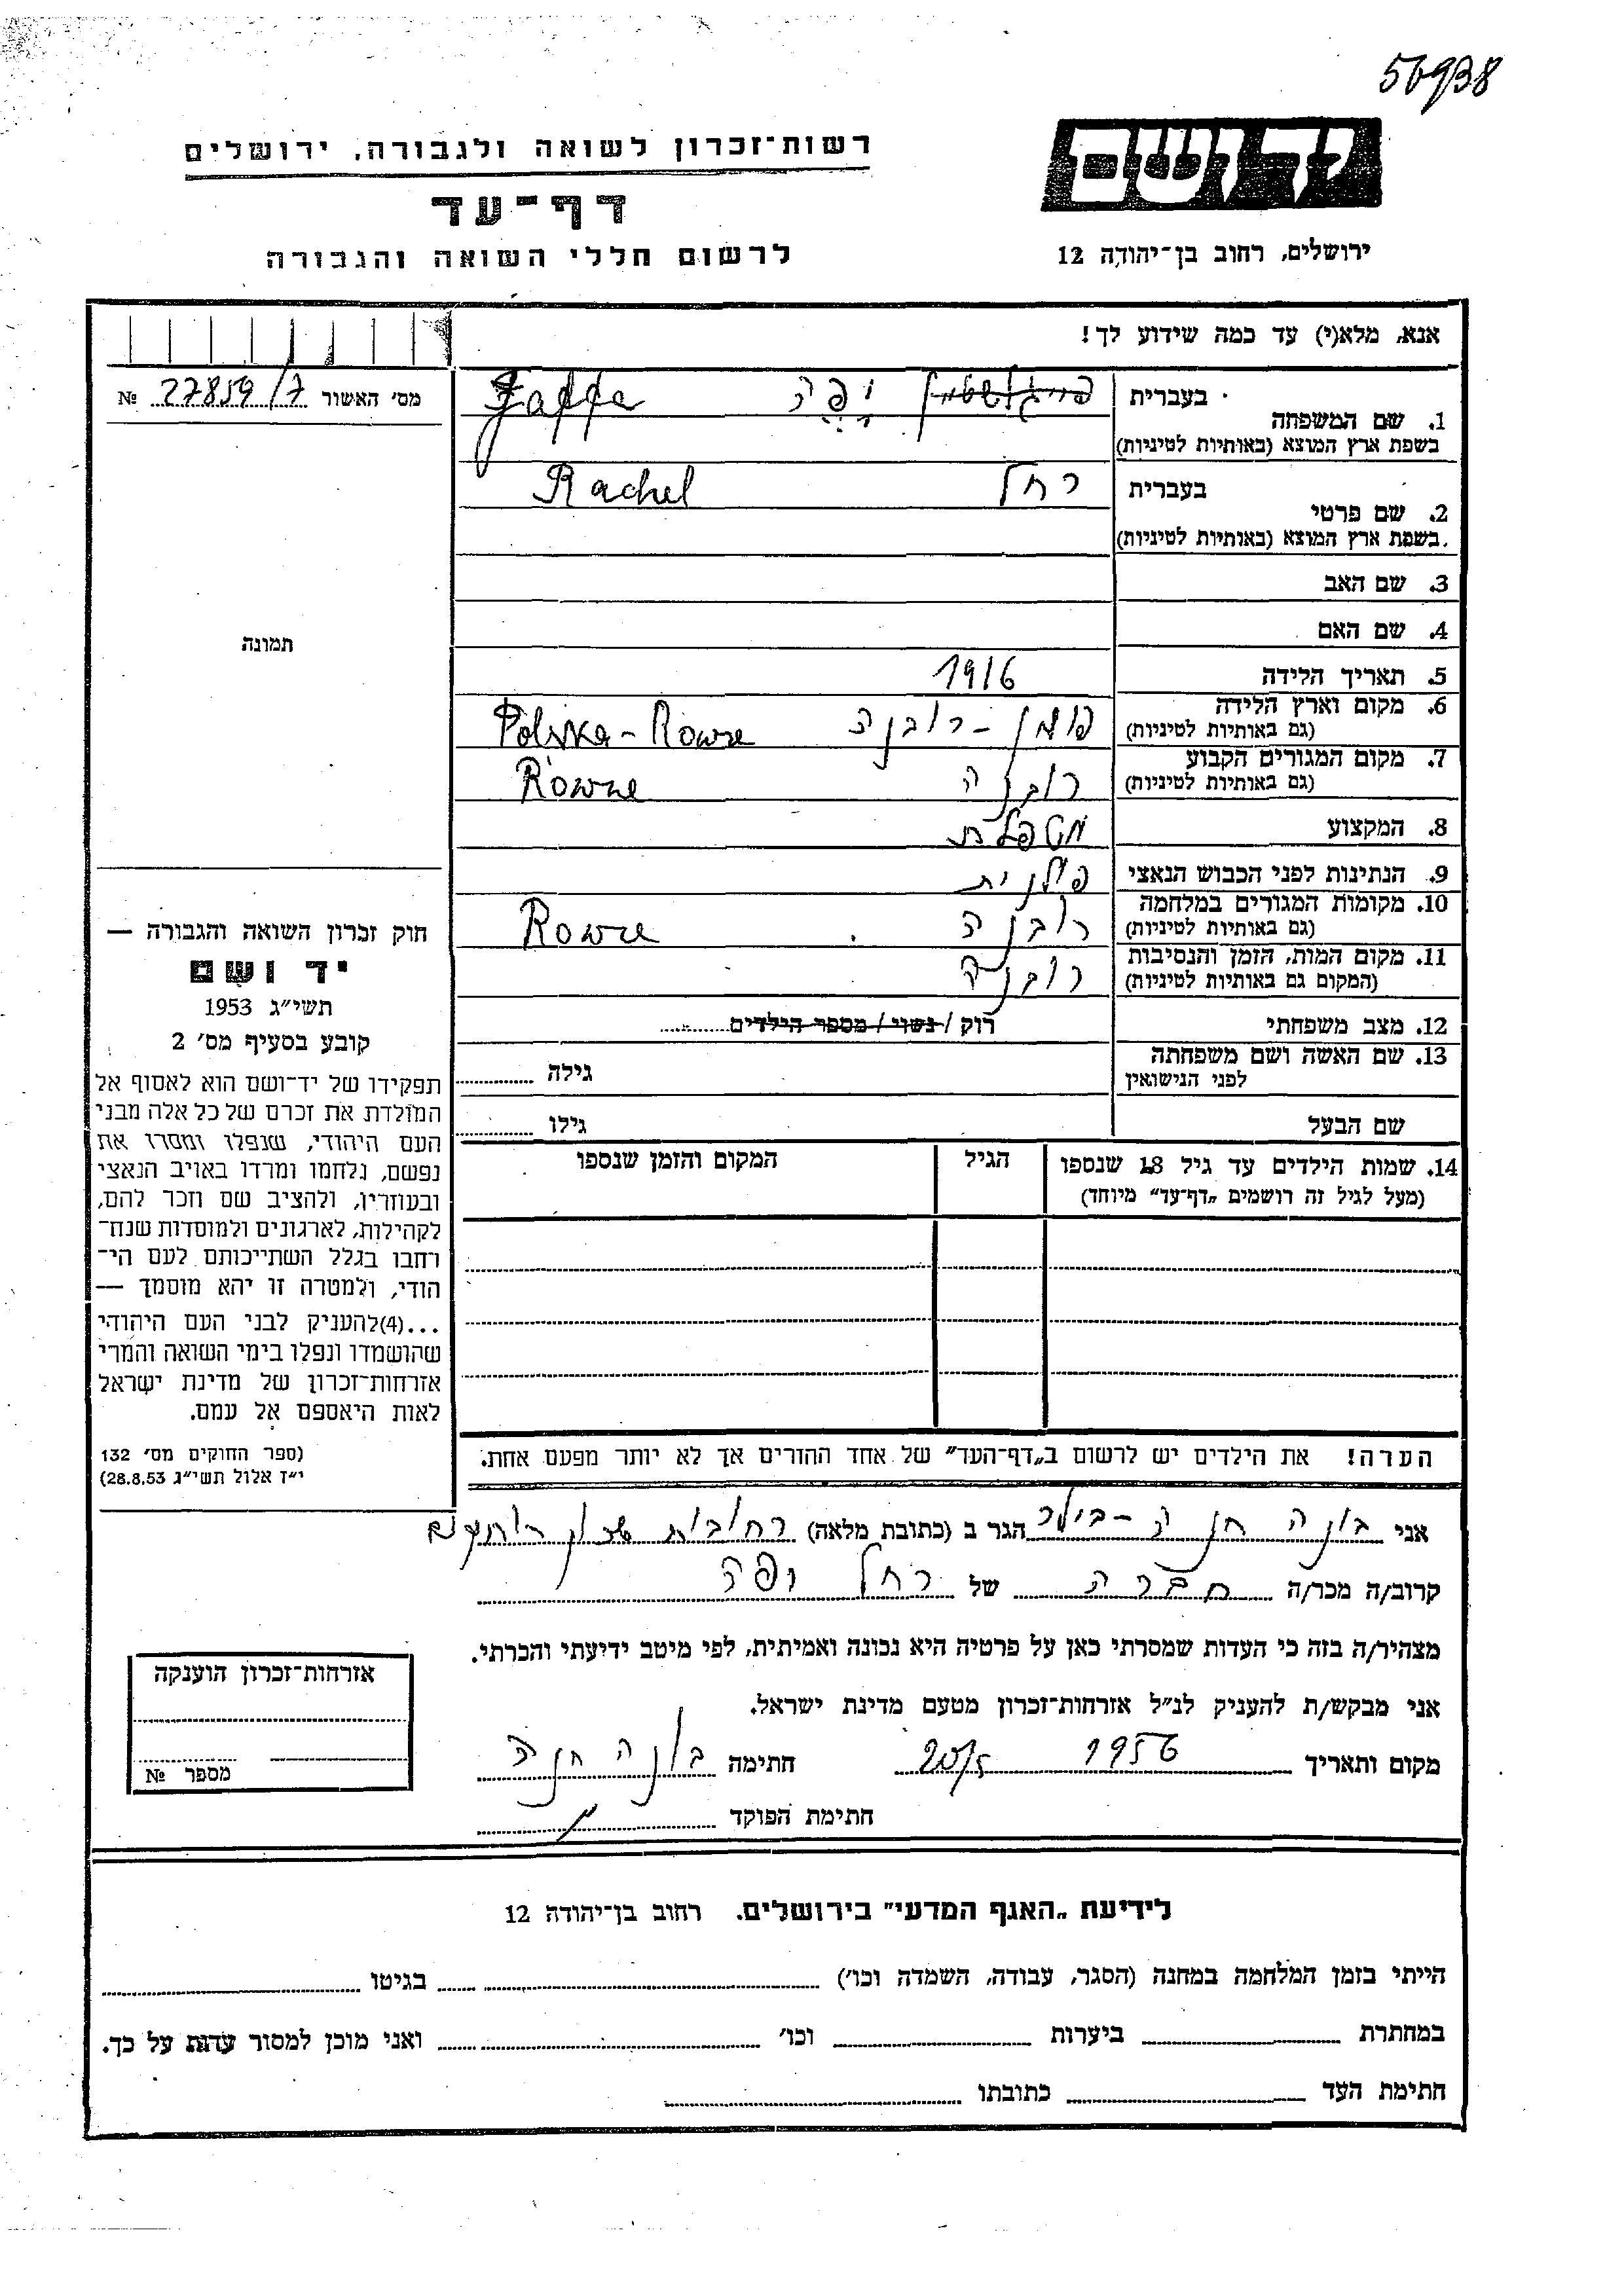 56938
יד ושם
רשות־זכרון לשואה ולגבורה, ירושלים
דף־עד
לרשום חללי השואה והגבורה
ירושלים, רחוב בן־יהודה 12
אנא, מלא(י) עד כמה שידוע לך!
מס׳ האשור 27859/7 №
תמונה
חוק זכרון השואה והגבורה —
יד ושם
תשי״ג 1953
קובע בסעיף מס׳ 2
תפקידו של יד־ושם הוא לאסוף אל
המולדת את זכרם של כל אלה מבני
העם היהודי, שנפלו ומסרו את
נפשם, נלחמו ומרדו באויב הנאצי
ובעוזריו, ולהציב שם וזכר להם,
לקהילות, לארגונים ולמוסדות שנח־
רחבו בגלל השתייכותם לעם הי־
הודי, ולמטרה זו יהא מוסמך —
...(4)להעניק לבני העם היהודי
שהושמדו ונפלו בימי השואה והמרי
אזרחות־זכרון של מדינת ישראל
לאות היאספם אל עמם.
(ספר החוקים מס׳ 132
י״ז אלול תשי״ג 28.8.53)
בעברית יפה Jaffe
1. שם המשפחה
בשפת ארץ המוצא (באותיות לטיניות)
בעברית רחל Rachel
2. שם פרטי
בשפת ארץ המוצא (באותיות לטיניות)
3. שם האב
4. שם האם
5. תאריך הלידה 1916
6. מקום וארץ הלידה פולין - רובנה Polska - Rowne
(גם באותיות לטיניות)
7. מקום המגורים הקבוע רובנה Rowne
(גם באותיות לטיניות)
8. המקצוע מטפלת
9. הנתינות לפני הכבוש הנאצי פולנית
10. מקומות המגורים במלחמה רובנה Rowne
(גם באותיות לטיניות)
11. מקום המות, הזמן והנסיבות רובנה
(המקום גם באותיות לטיניות)
12. מצב משפחתי רוק / נשוי / מספר הילדים
13. שם האשה ושם משפחתה גילה
לפני הנישואין
שם הבעל גילו
14. שמות הילדים עד גיל 18 שנספו הגיל המקום והזמן שנספו
(מעל לגיל זה רושמים „דף־עד״ מיוחד)
הערה! את הילדים יש לרשום ב„דף־העד״ של אחד ההורים אך לא יותר מפעם אחת.
אני בונה חנה הגר ב (כתובת מלאה) רחובות שכון
קרוב/ה מכר/ה חברה של רחל יפה
מצהיר/ה בזה כי העדות שמסרתי כאן על פרטיה היא נכונה ואמיתית, לפי מיטב ידיעתי והכרתי.
אני מבקש/ת להעניק לנ״ל אזרחות־זכרון מטעם מדינת ישראל.
מקום ותאריך 1956 20/5 חתימה בונה חנה
חתימת הפוקד
אזרחות־זכרון הוענקה
מספר №
לידיעת „האגף המדעי״ בירושלים. רחוב בן־יהודה 12
הייתי בזמן המלחמה במחנה (הסגר, עבודה, השמדה וכו׳) בגיטו
במחתרת ביערות וכו׳ ואני מוכן למסור עדות על כך.
חתימת העד כתובתו